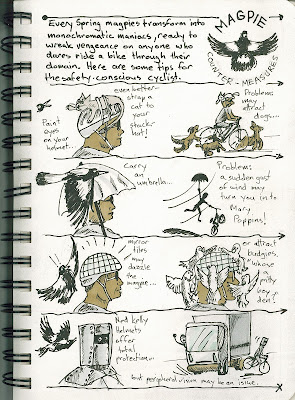 Every Spring magpies transform into
monochromatic maniacs, ready to
wreak vengeance on anyone who
dares ride a bike through their
domain. Here are some tips for
the safety-conscious cyclist.
MAGPIE
COUNTER-MEASURES
Paint
eyes
on your
helmet...
even better-
strap a
cat to
your
stack-
hat!
Problem:
may
attract
dogs...
Carry
an umbrella...
Problem:
a sudden gust
of wind may
turn you into
Mary
Poppins!
mirror
tiles
may
dazzle
the
magpie...
or attract
budgies,
whose
a
pitty
boy
den!
Ned Kelly
Helmets
offer
total
protection...
but peripheral vision may be an issue.